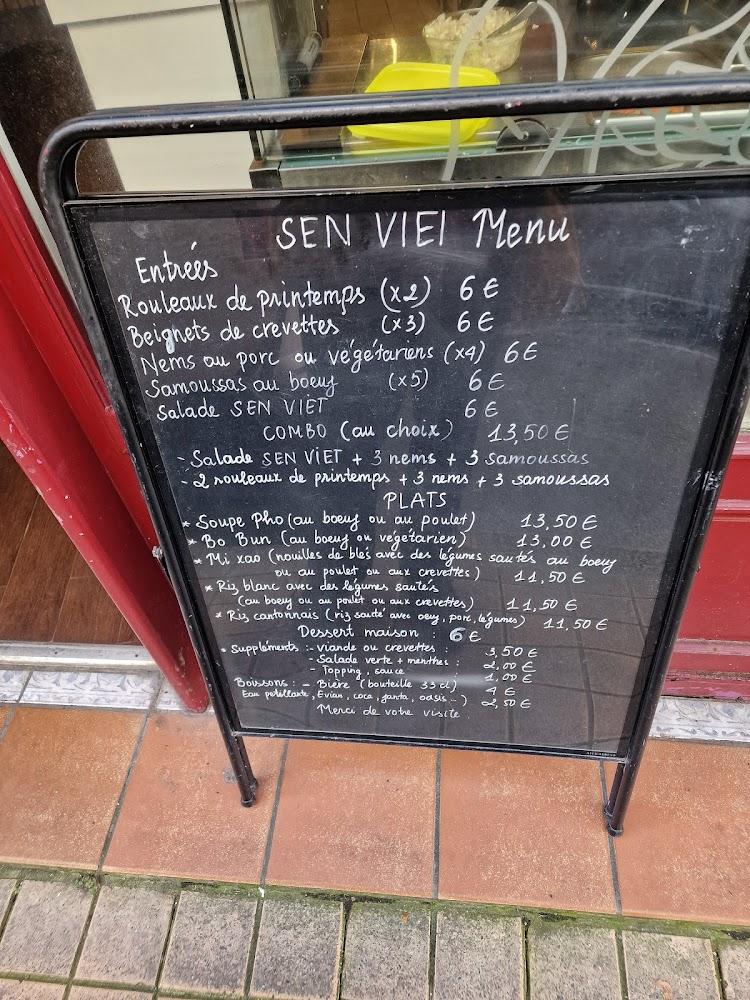 SEN VIET Menu
Entrées
Rouleaux de printemps (x2) 6 €
Beignets de crevettes (x3) 6 €
Nems au porc ou végétariens (x4) 6 €
Samoussas au boeuf (x5) 6 €
Salade SEN VIET 6 €
COMBO (au choix) 13,50 €
- Salade SEN VIET + 3 nems + 3 samoussas
- 2 rouleaux de printemps + 3 nems + 3 samoussas
PLATS
* Soupe Pho (au boeuf ou au poulet) 13,50 €
* Bo Bun (au boeuf ou végétarien) 13,00 €
* Mi xao (nouilles de blés avec des légumes sautés au boeuf
ou au poulet ou aux crevettes) 11,50 €
* Riz blanc avec des légumes sautés
(au boeuf ou au poulet ou aux crevettes) 11,50 €
* Riz cantonnais (riz sauté avec oeuf, porc, légumes) 11,50 €
Dessert maison : 6 €
* Suppléments : - viande ou crevettes : 3,50 €
- Salade verte + menthes : 2,00 €
- Topping, sauce : 1,00 €
Boissons : - Bière (bouteille 33 cl) 4 €
Eau pétillante, Evian, coca, fanta, oasis...) 2,50 €
Merci de votre visite